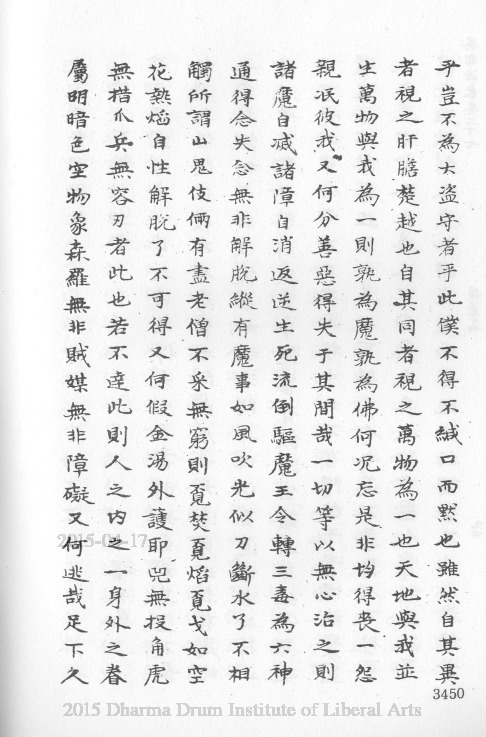 乎豈不為大盜守者乎此僕不得不緘口而默也雖然自其異
者視之肝膽楚越也自其同者視之萬物為一也天地與我並
生萬物與我為一則孰為魔孰為佛何況忘是非均得喪一怨
親泯彼我又何分善惡得失于其間哉一切等以無心治之則
諸魔自滅諸障自消返逆生死流倒驅魔王令轉三毒為六神
通得念失念無非解脫縱有魔事如風吹光似刀斷水了不相
觸所謂山鬼伎倆有盡老僧不采無窮則覓焚覓熖覓戈如空
花熱熖自性解脫了不可得又何假金湯外護耶兕無投角虎
無措爪兵無容刃者此也若不達此則人之內之一身外之眷
屬明暗色空物象森羅無非賊媒無非障礙又何逃哉足下久
3450
2015-04-17
2015 Dharma Drum Institute of Liberal Arts